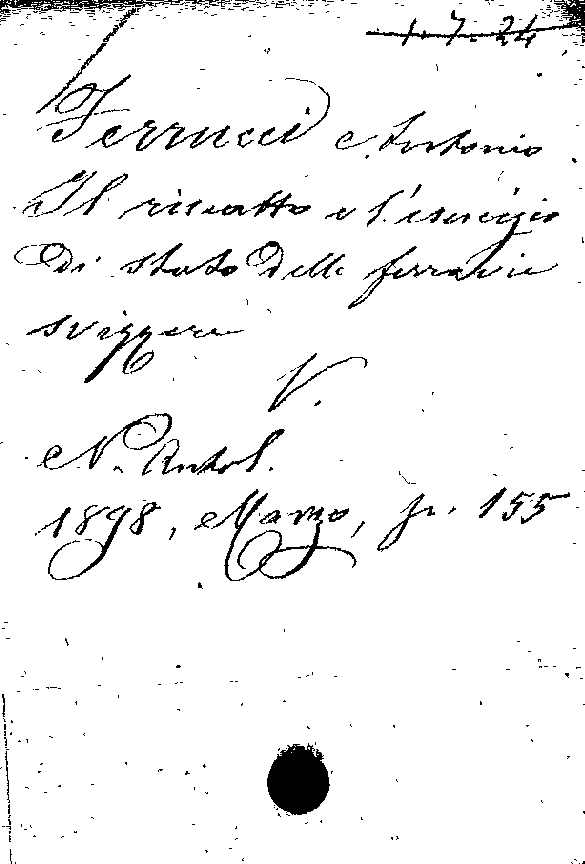 1.7.24
Ferrucci Antonio
Il riscatto e l'esercizio
di stato delle ferrovie
svizzere
V.
N. Antol.
1898, Marzo, p. 155